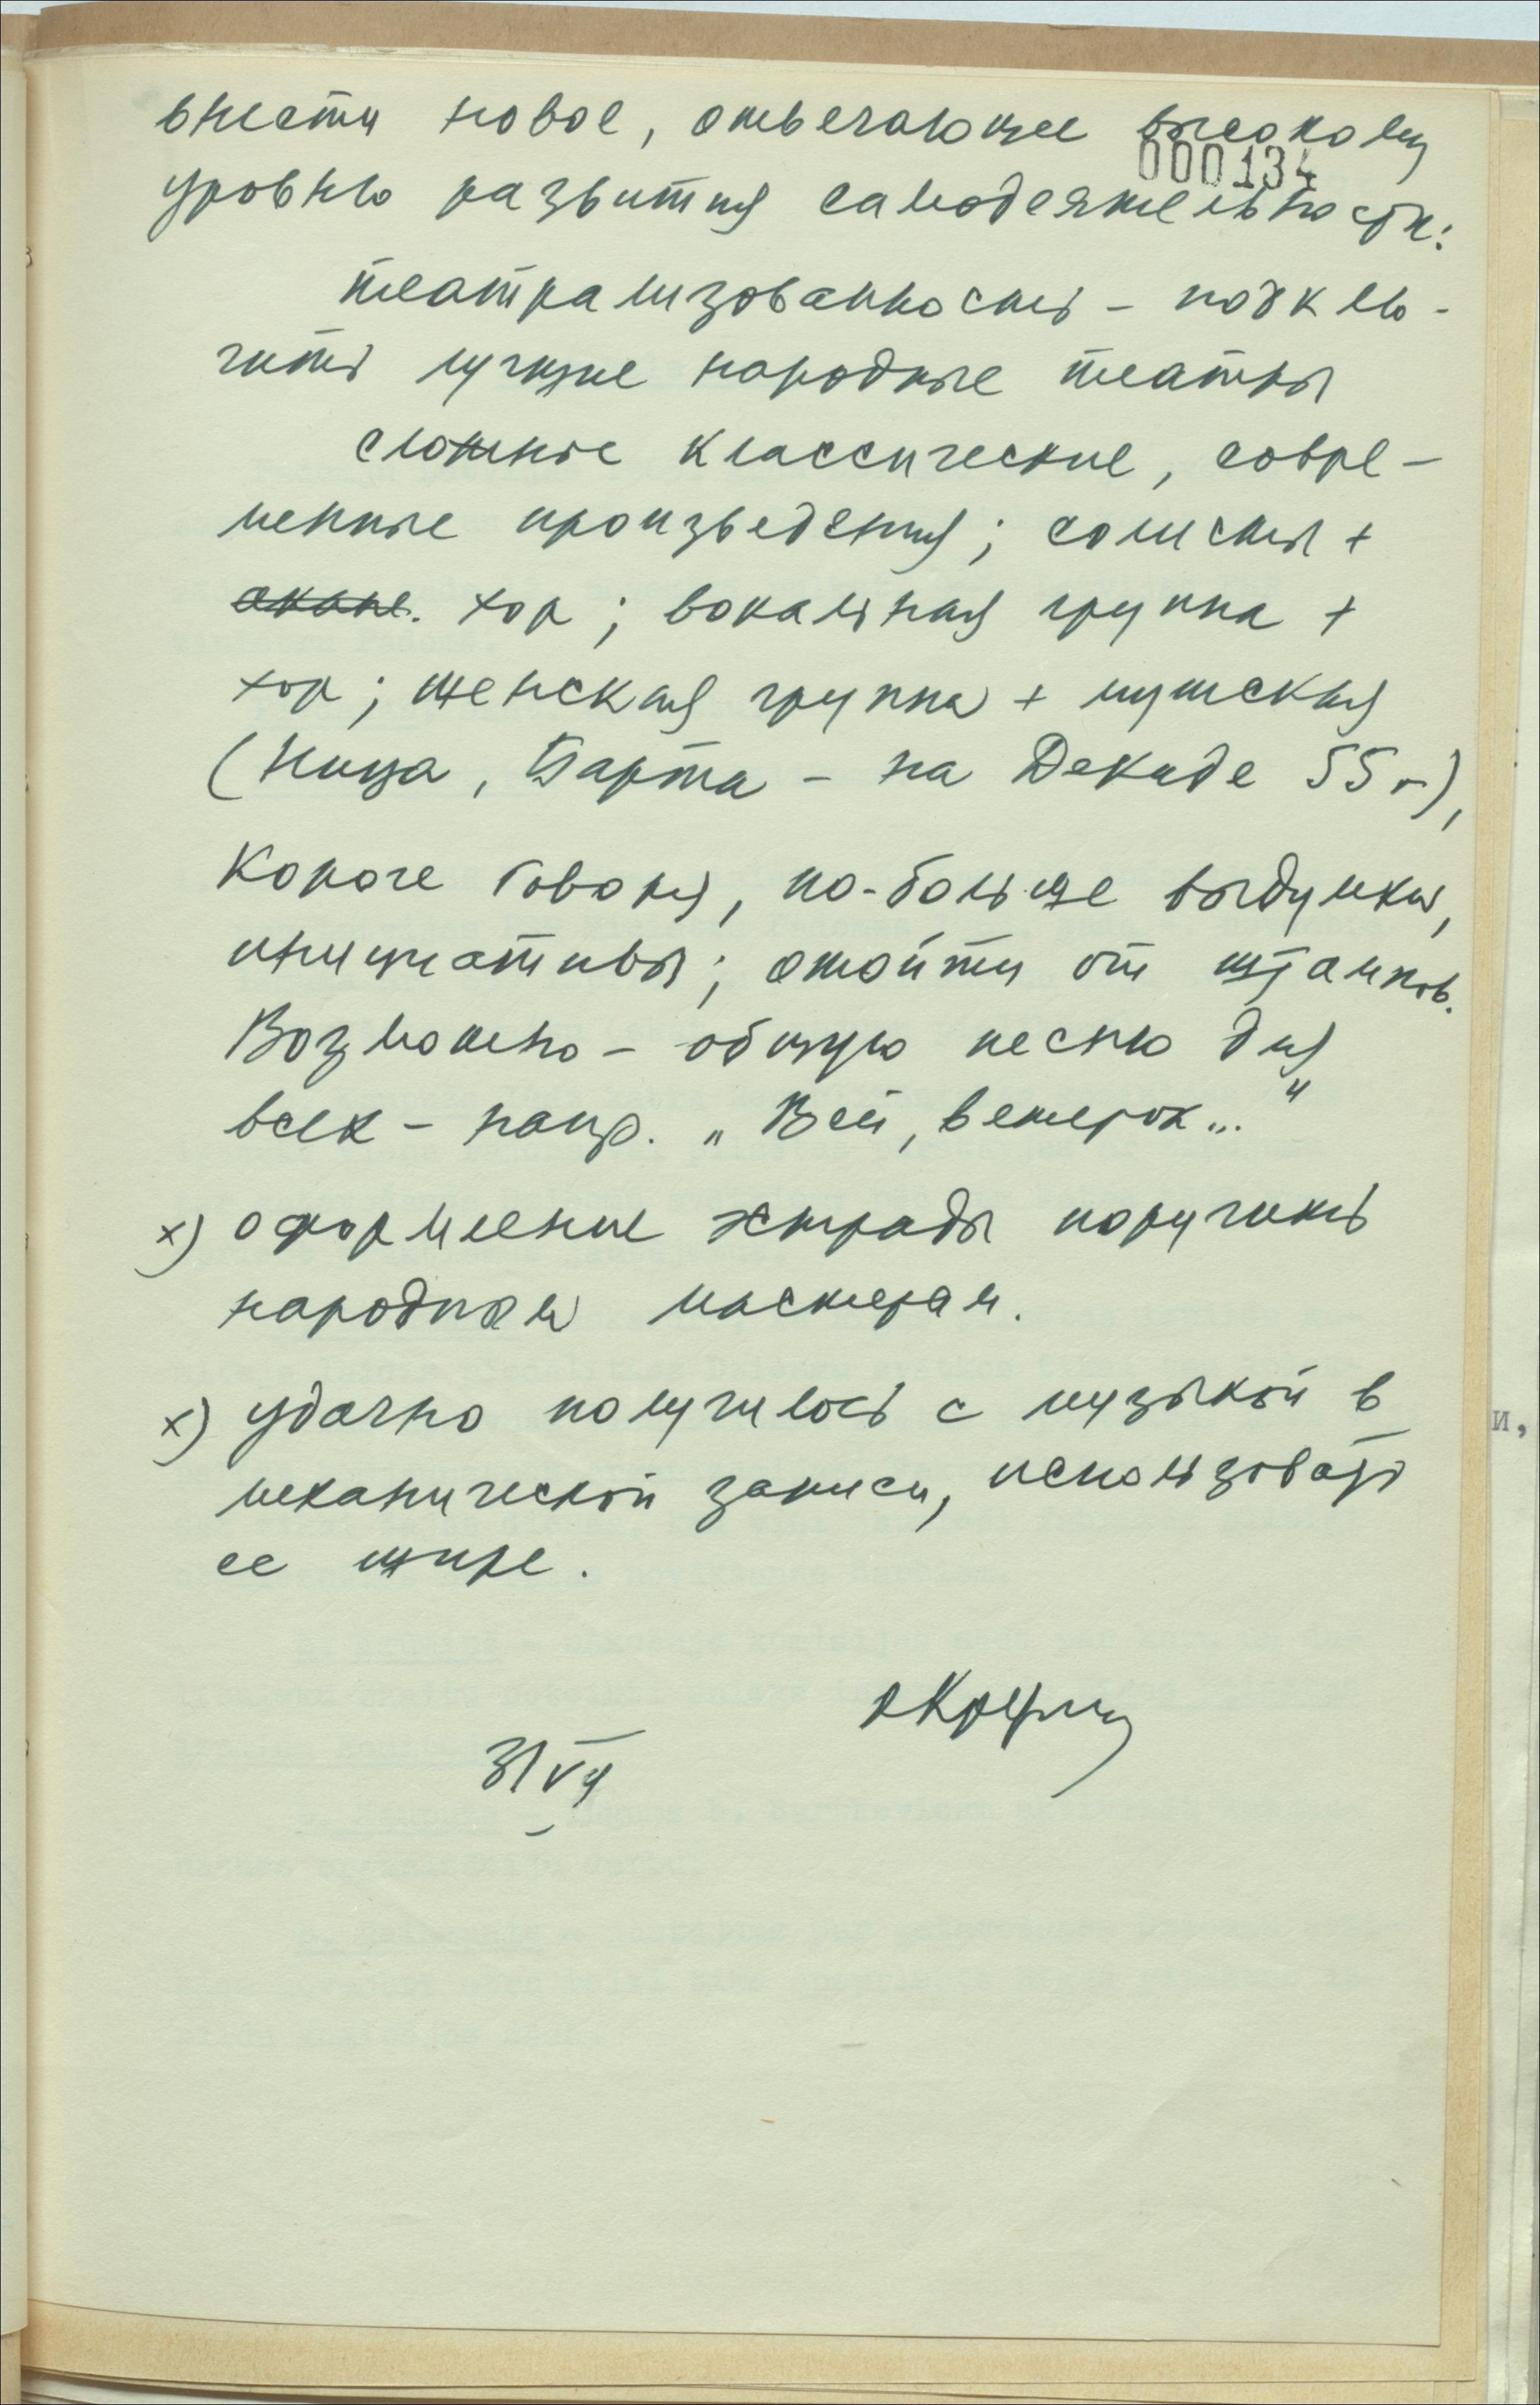 внести новое, отвечающее высокому
000134
уровню развития самодеятельности:
театрализованность – подклю-
чить лучшие народные театры
сложные классические, совре-
менные произведения; солисты +
хор; вокальная группа +
хор; женская группа + мужская
(Ница, Барта – на Декаде 55 г),
Короче говоря, по-больше выдумки,
инициативы; отойти от штампов.
Возможно – общую песню для
всех – напр. „Вей, ветерок..."
х) оформление эстрады поручить
народным мастерам.
х) удачно получилось с музыкой в
механической записи, использовать
ее шире.
31 VII
и,